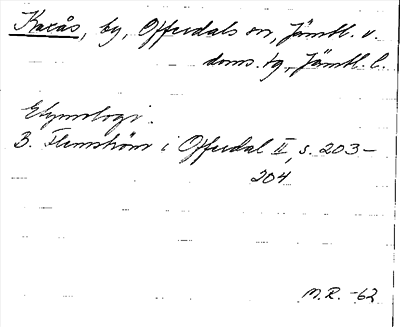 Kaxås, by, Offerdals sn, Jämtl. v.
doms. tg., Jämtl. l.
Etymologi.
B. Flemström i Offerdal II, s. 203–
204
M.R. -62